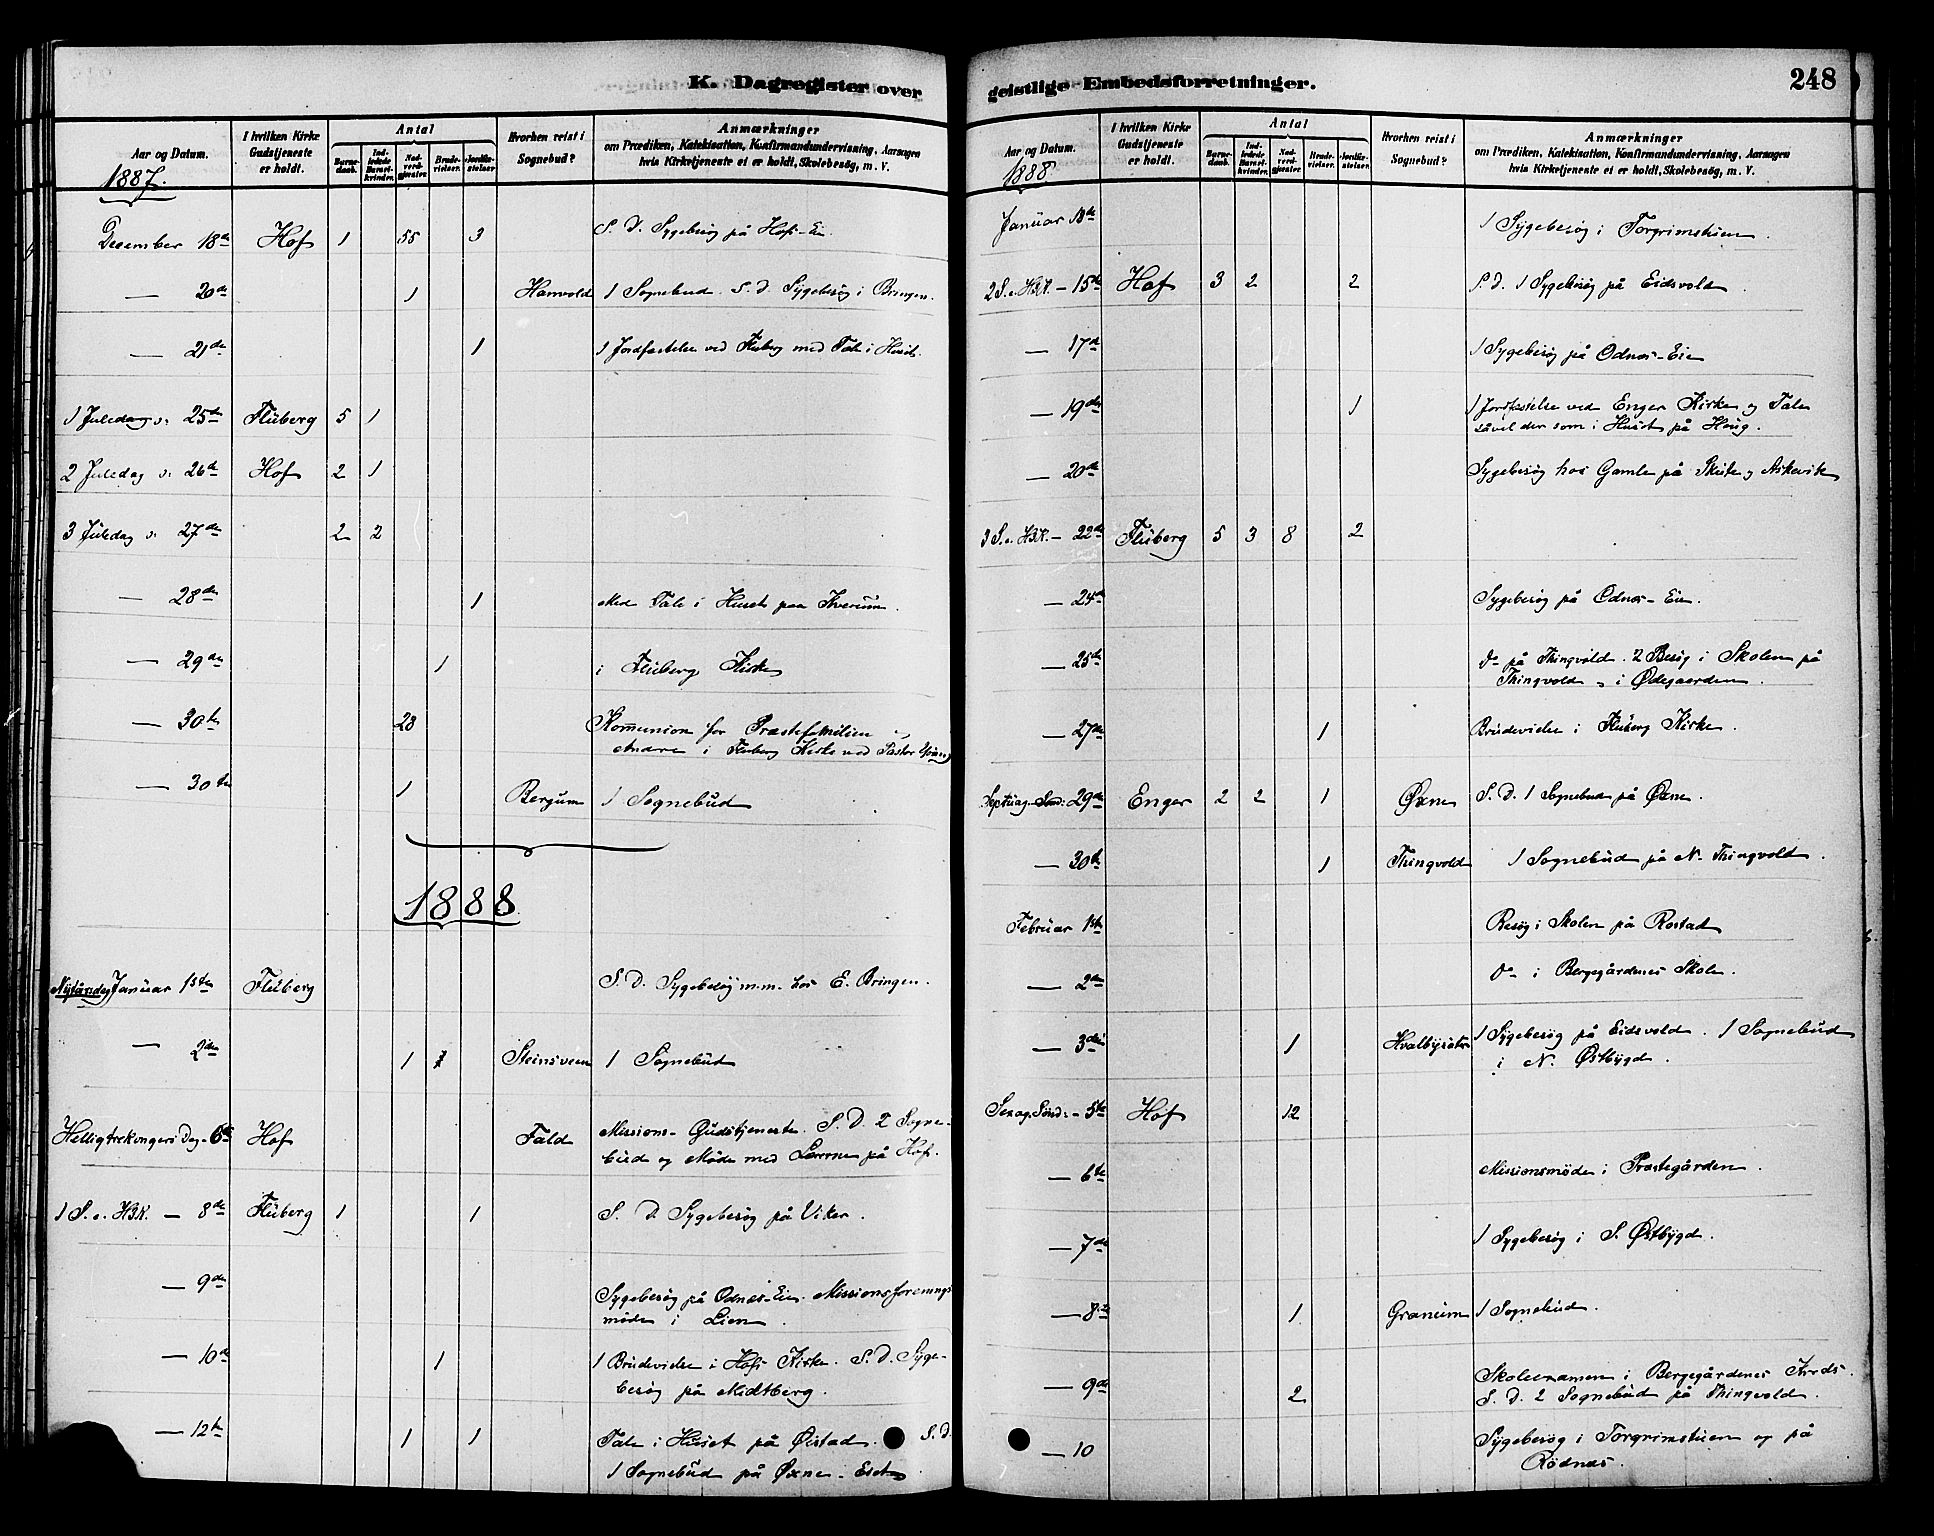 K. Dagregister over
Aar og Datum.
I hvilken Kirke Gudstjeneste er holdt.
Antal
Barnedaab.
Indledede Barselkvinder.
Nadverdgjester.
Brudevielser.
Jordfæstelser.
Hvorhen reist i Sognebud?
Anmærkninger
om Prædiken, Katekisation, Konfirmandundervisning, Aarsagen
hvis Kirketjeneste ei er holdt, Skolebesög, m. V.
1887.
December 18de Hof 1 55 3 S. D. Sygebesøg på Hofs-Eie.
— 20de 1 Hamvold 1 Sognebud. S. D. Sygebesøg i Bringen.
— 21de 1 1 Jordfæstelse ved Fluberg med Tale i Huset.
1 Juledag d. 25de Fluberg 5 1
2 Juledag d. 26de Hof 2 1
3 Juledag d. 27de 2 2
— 28de 1 Med Tale i Huset paa
— 29de 1 i Fluberg Kirke
— 30te 28 Kommunion for Præstefamilien
Andre i Fluberg Kirke ved Pastor
— 30te 1 Bergum 1 Sognebud
1888
Nytårsdag Januar 1ste Fluberg S. D. Sygebesøg m.m. hos E. Bringen.
— 2den 1 Steinsveen 1 Sognebud
Helligtrekongers Dag - 6te Hof Fald Missions-Gudstjeneste. S. D. 2 Sogne-
bud og Møde med på Hof.
1 S. e. H3K. — 8de Fluberg 1 1 S. D. Sygebesøg på Viker.
— 9de Sygebesøg på Odnæs-Eie. Missionsforenings
møde i Lien.
— 10de 1 1 Brudevielse i Hofs Kirke. S. D. Syge-
besøg på Midtberg.
— 12te 1 1 Tale i Huset på Øistad. S. D.
1 Sognebud på Øxne-
geistlige Embedsforretninger.
248
Aar og Datum.
I hvilken Kirke Gudstjeneste er holdt.
Antal
Barnedaab.
Indledede Barselkvinder.
Nadverdgjester.
Brudevielser.
Jordfæstelser.
Hvorhen reist i Sognebud?
Anmærkninger
om Prædiken, Katekisation, Konfirmandundervisning, Aarsagen
hvis Kirketjeneste ei er holdt, Skolebesög, m. V.
1888
Januar 1 Sygebesøg i Torgrimstuen.
2 S. e. H3K. — 15de Hof 3 2 2 S. D. 1 Sygebesøg på Eidsvold.
— 17de 1 Sygebesøg på Odnæs-Eie
— 19de 1 1 Jordfæstelse ved Enger Kirke og Tale
såvel der som i Huset på Haug.
— 20de Sygebesøg hos Gamle på Skute og Askevik
3 S. e. H3K. — 22de Fluberg 5 3 8 2
— 24de Sygebesøg på Odnæs-Eie.
— 25de do på Thingvold. 2 Besøg i Skolen på
Thingvold og i Ødegaarden.
— 27de 1 Brudevielse i Fluberg Kirke.
Septuag. Sønd: 29de Enger 2 2 1 Øxne S. D. 1 Sognebud på Øxne.
— 30te 1 Thingvold 1 Sognebud på N. Thingvold.
Februar 1ste Besøg i Skolen på Rostad
— 2den do i Bergegårdenes Skole.
— 3die 1 1 Sygebesøg på Eidsvold. 1 Sognebud
i N. Østbygd.
Sexag. Sønd: — 5te Hof 12
— 6te Missionsmøde i Præstegården.
— 7de 1 Sygebesøg i S. Østbygd.
— 8de 1 Granum 1 Sognebud.
— 9de 2 Skoleexamen i Bergegårdenes Krds.
S. D. 2 Sognebud på Thingvold.
— 10 Sygebesøg i Torgrimstuen og på
Rødnæs.